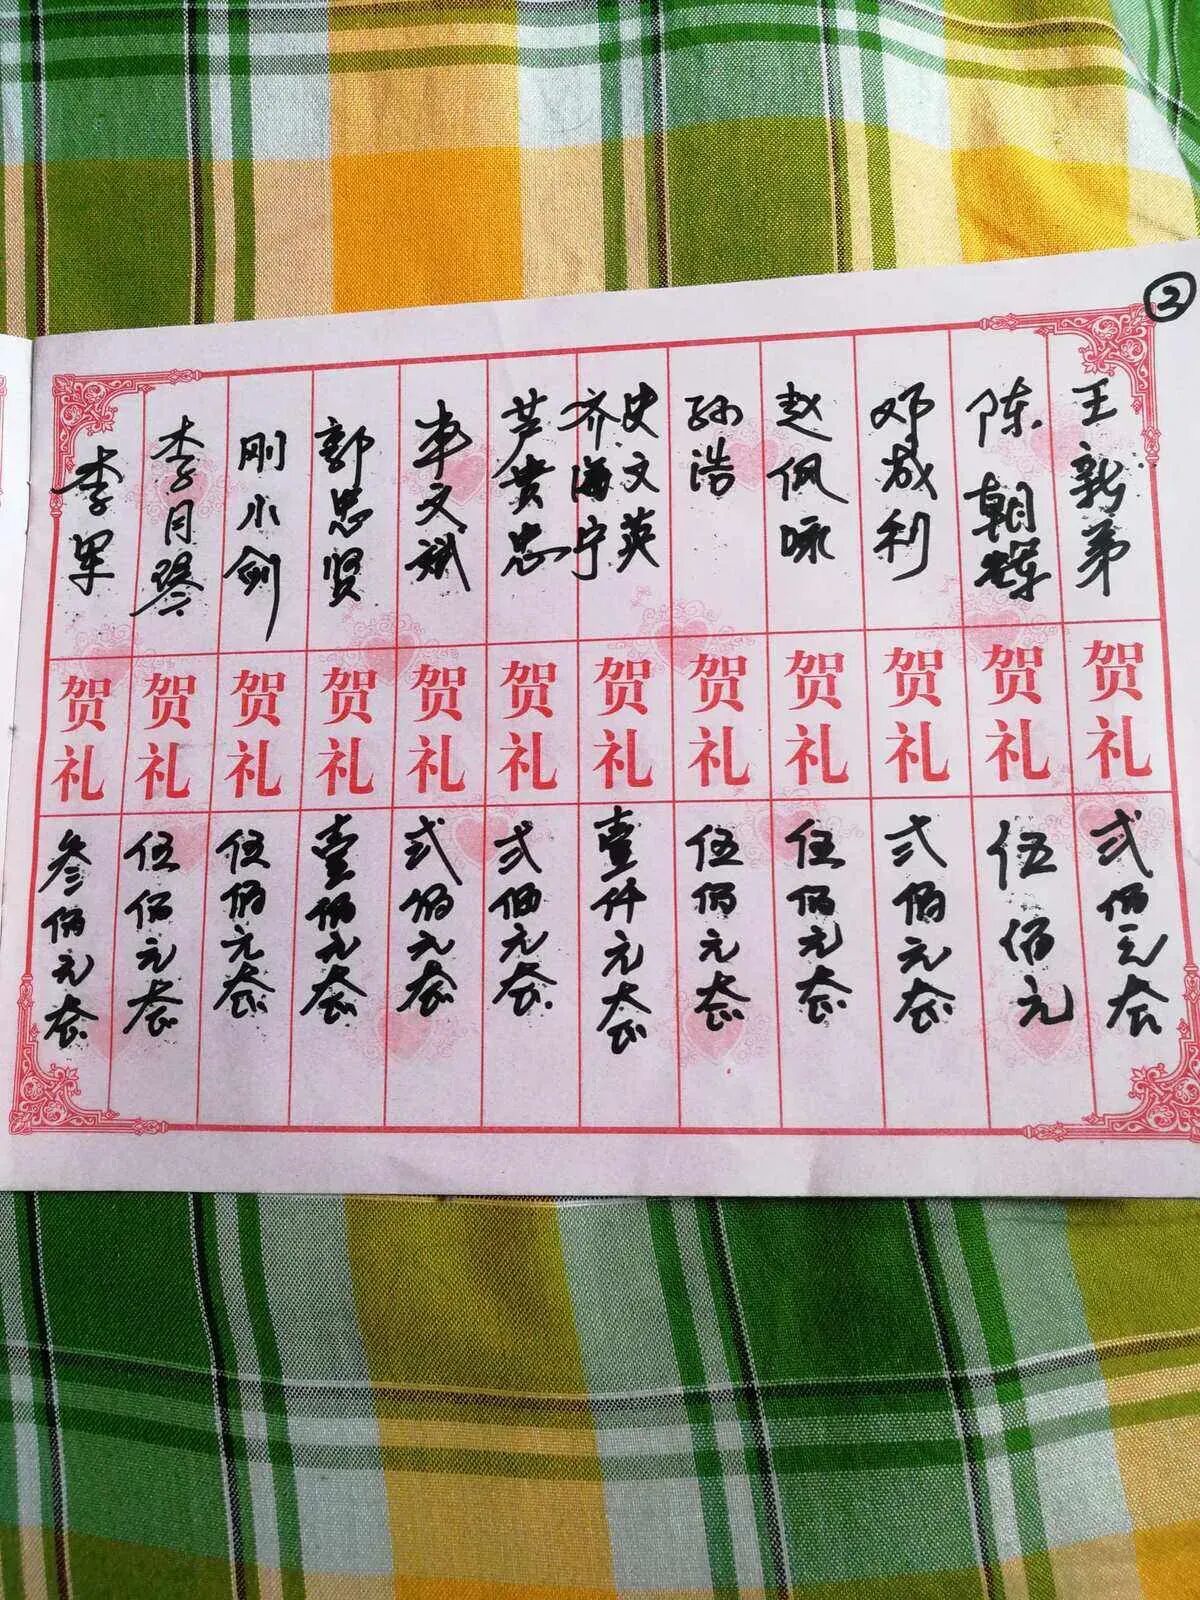 ②
王新弟 贺礼 贰佰元整
陈朝辉 贺礼 伍佰元
邓成利 贺礼 贰佰元整
赵佩咏 贺礼 伍佰元整
孙浩 贺礼 伍佰元整
史文英 齐海宁 贺礼 壹仟元整
芦贵忠 贺礼 贰佰元整
车文斌 贺礼 贰佰元整
郭忠贤 贺礼 壹佰元整
刚小剑 贺礼 伍佰元整
李月琴 贺礼 伍佰元整
李军 贺礼 叁佰元整